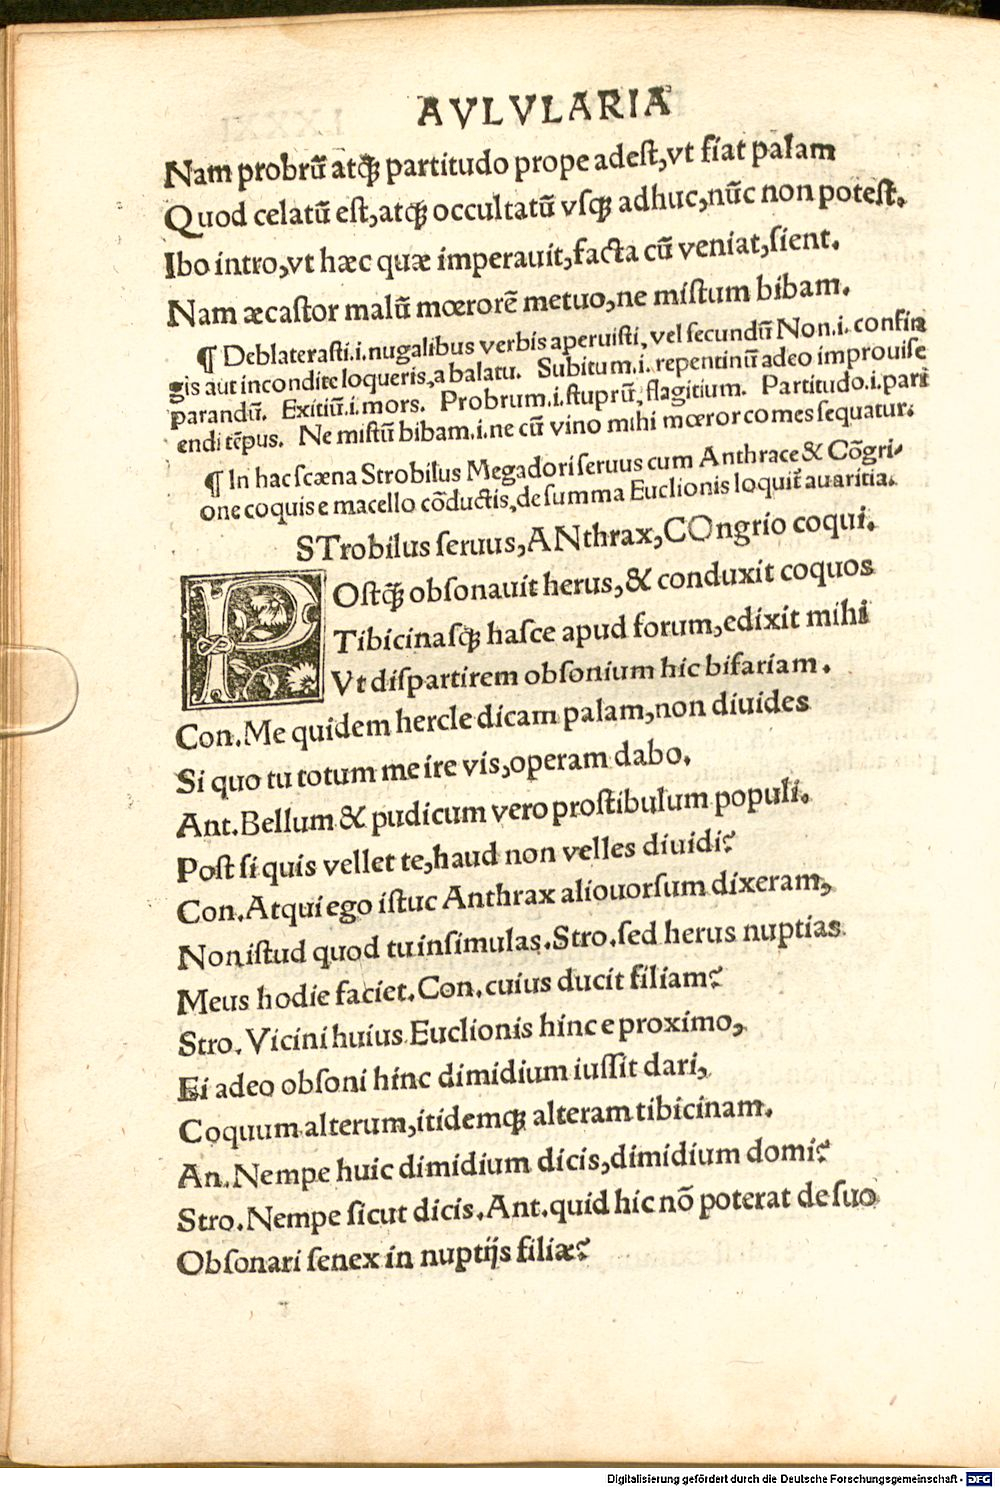 AVLVLARIA
Nam probrũ atqꝫ partitudo prope adeſt,vt fiat palam
Quod celatũ eſt,atqꝫ occultatũ vſqꝫ adhuc,nũc non poteſt.
Ibo intro,vt hæc quæ imperauit,facta cũ veniat,ſient.
Nam æcaſtor malũ mœrorẽ metuo,ne miſtum bibam.
¶ Deblateraſti.i.nugalibus verbis aperuiſti, vel ſecundũ Non.i.confin
gis aut incondite loqueris,a balatu. Subitum.i.repentinũ adeo improuiſe
parandũ. Exitiũ.i.mors. Probrum.i.ſtuprũ, flagitium. Partitudo.i.pari
endi tẽpus. Ne miſtũ bibam.i.ne cũ vino mihi mœror comes ſequatur.
¶ In hac ſcæna Strobilus Megadori ſeruus cum Anthrace & Cõgri-
one coquis e macello cõductis,de ſumma Euclionis loquit̃ auaritia.
STrobilus ſeruus,ANthrax,COngrio coqui.
POſtqꝫ obſonauit herus,& conduxit coquos
Tibicinaſqꝫ haſce apud forum,edixit mihi
Vt diſpartirem obſonium hic bifariam.
Con.Me quidem hercle dicam palam,non diuides
Si quo tu totum me ire vis,operam dabo.
Ant.Bellum & pudicum vero proſtibulum populi.
Poſt ſi quis vellet te,haud non velles diuidi?
Con.Atqui ego iſtuc Anthrax aliouorſum dixeram,
Non iſtud quod tu inſimulas.Stro.ſed herus nuptias
Meus hodie faciet.Con.cuius ducit filiam?
Stro.Vicini huius Euclionis hinc e proximo,
Ei adeo obſoni hinc dimidium iuſſit dari,
Coquum alterum,itidemqꝫ alteram tibicinam.
An.Nempe huic dimidium dicis,dimidium domi?
Stro.Nempe ſicut dicis.Ant.quid hic nõ poterat de ſuo
Obſonari ſenex in nuptijs filiæ?
Digitalisierung gefördert durch die Deutsche Forschungsgemeinschaft - DFG